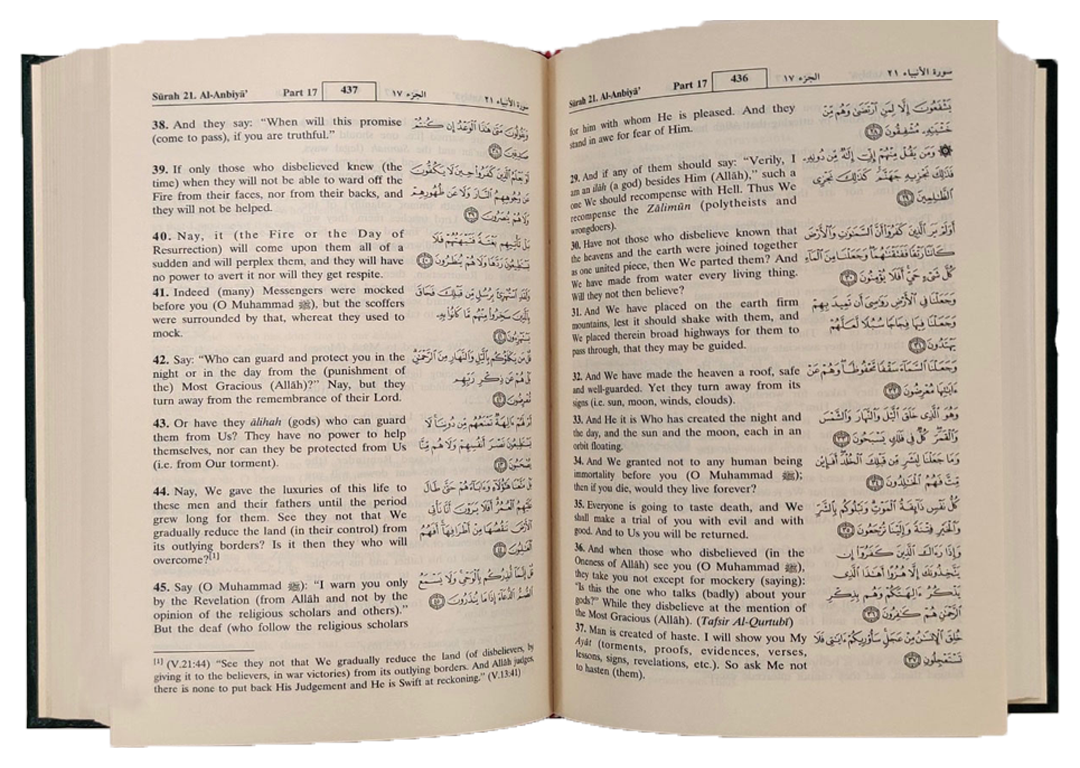 Sūrah 21. Al-Anbiyā’ Part 17 436 الجزء ١٧ سورة الأنبياء ٢١
for him with whom He is pleased. And they
stand in awe for fear of Him.
29. And if any of them should say: “Verily, I
am an ilāh (a god) besides Him (Allāh),” such a
one We should recompense with Hell. Thus We
recompense the Zālimūn (polytheists and
wrongdoers).
30. Have not those who disbelieve known that
the heavens and the earth were joined together
as one united piece, then We parted them? And
We have made from water every living thing.
Will they not then believe?
31. And We have placed on the earth firm
mountains, lest it should shake with them, and
We placed therein broad highways for them to
pass through, that they may be guided.
32. And We have made the heaven a roof, safe
and well-guarded. Yet they turn away from its
signs (i.e. sun, moon, winds, clouds).
33. And He it is Who has created the night and
the day, and the sun and the moon, each in an
orbit floating.
34. And We granted not to any human being
immortality before you (O Muhammad ﷺ);
then if you die, would they live forever?
35. Everyone is going to taste death, and We
shall make a trial of you with evil and with
good. And to Us you will be returned.
36. And when those who disbelieved (in the
Oneness of Allāh) see you (O Muhammad ﷺ),
they take you not except for mockery (saying):
“Is this the one who talks (badly) about your
gods?” While they disbelieve at the mention of
the Most Gracious (Allāh). (Tafsir Al-Qurtubī)
37. Man is created of haste. I will show you My
Ayāt (torments, proofs, evidences, verses,
lessons, signs, revelations, etc.). So ask Me not
to hasten (them).
يَشْفَعُونَ إِلَّا لِمَنِ ٱرْتَضَىٰ وَهُم مِّنْ
خَشْيَتِهِۦ مُشْفِقُونَ ٢٨
۞ وَمَن يَقُلْ مِنْهُمْ إِنِّىٓ إِلَٰهٌ مِّن دُونِهِۦ
فَذَٰلِكَ نَجْزِيهِ جَهَنَّمَ كَذَٰلِكَ نَجْزِى
ٱلظَّٰلِمِينَ ٢٩
أَوَلَمْ يَرَ ٱلَّذِينَ كَفَرُوٓا۟ أَنَّ ٱلسَّمَٰوَٰتِ وَٱلْأَرْضَ
كَانَتَا رَتْقًا فَفَتَقْنَٰهُمَا وَجَعَلْنَا مِنَ ٱلْمَآءِ
كُلَّ شَىْءٍ حَىٍّ أَفَلَا يُؤْمِنُونَ ٣٠
وَجَعَلْنَا فِى ٱلْأَرْضِ رَوَٰسِىَ أَن تَمِيدَ بِهِمْ
وَجَعَلْنَا فِيهَا فِجَاجًا سُبُلًا لَّعَلَّهُمْ
يَهْتَدُونَ ٣١
وَجَعَلْنَا ٱلسَّمَآءَ سَقْفًا مَّحْفُوظًا وَهُمْ عَنْ
ءَايَٰتِهَا مُعْرِضُونَ ٣٢
وَهُوَ ٱلَّذِى خَلَقَ ٱلَّيْلَ وَٱلنَّهَارَ وَٱلشَّمْسَ
وَٱلْقَمَرَ كُلٌّ فِى فَلَكٍ يَسْبَحُونَ ٣٣
وَمَا جَعَلْنَا لِبَشَرٍ مِّن قَبْلِكَ ٱلْخُلْدَ أَفَإِي۟ن
مِّتَّ فَهُمُ ٱلْخَٰلِدُونَ ٣٤
كُلُّ نَفْسٍ ذَآئِقَةُ ٱلْمَوْتِ وَنَبْلُوكُم بِٱلشَّرِّ
وَٱلْخَيْرِ فِتْنَةً وَإِلَيْنَا تُرْجَعُونَ ٣٥
وَإِذَا رَءَاكَ ٱلَّذِينَ كَفَرُوٓا۟ إِن
يَتَّخِذُونَكَ إِلَّا هُزُوًا أَهَٰذَا ٱلَّذِى
يَذْكُرُ ءَالِهَتَكُمْ وَهُم بِذِكْرِ
ٱلرَّحْمَٰنِ هُمْ كَٰفِرُونَ ٣٦
خُلِقَ ٱلْإِنسَٰنُ مِنْ عَجَلٍ سَأُو۟رِيكُمْ ءَايَٰتِى فَلَا
تَسْتَعْجِلُونِ ٣٧
Sūrah 21. Al-Anbiyā’ Part 17 437 الجزء ١٧ سورة الأنبياء ٢١
38. And they say: “When will this promise
(come to pass), if you are truthful.”
39. If only those who disbelieved knew (the
time) when they will not be able to ward off the
Fire from their faces, nor from their backs, and
they will not be helped.
40. Nay, it (the Fire or the Day of
Resurrection) will come upon them all of a
sudden and will perplex them, and they will have
no power to avert it nor will they get respite.
41. Indeed (many) Messengers were mocked
before you (O Muhammad ﷺ), but the scoffers
were surrounded by that, whereat they used to
mock.
42. Say: “Who can guard and protect you in the
night or in the day from the (punishment of
the) Most Gracious (Allāh)?” Nay, but they
turn away from the remembrance of their Lord.
43. Or have they ālihah (gods) who can guard
them from Us? They have no power to help
themselves, nor can they be protected from Us
(i.e. from Our torment).
44. Nay, We gave the luxuries of this life to
these men and their fathers until the period
grew long for them. See they not that We
gradually reduce the land (in their control) from
its outlying borders? Is it then they who will
overcome?[1]
45. Say (O Muhammad ﷺ): “I warn you only
by the Revelation (from Allāh and not by the
opinion of the religious scholars and others).”
But the deaf (who follow the religious scholars
وَيَقُولُونَ مَتَىٰ هَٰذَا ٱلْوَعْدُ إِن كُنتُمْ
صَٰدِقِينَ ٣٨
لَوْ يَعْلَمُ ٱلَّذِينَ كَفَرُوا۟ حِينَ لَا يَكُفُّونَ
عَن وُجُوهِهِمُ ٱلنَّارَ وَلَا عَن ظُهُورِهِمْ
وَلَا هُمْ يُنصَرُونَ ٣٩
بَلْ تَأْتِيهِم بَغْتَةً فَتَبْهَتُهُمْ فَلَا
يَسْتَطِيعُونَ رَدَّهَا وَلَا هُمْ يُنظَرُونَ ٤٠
وَلَقَدِ ٱسْتُهْزِئَ بِرُسُلٍ مِّن قَبْلِكَ فَحَاقَ
بِٱلَّذِينَ سَخِرُوا۟ مِنْهُم مَّا كَانُوا۟ بِهِۦ
يَسْتَهْزِءُونَ ٤١
قُلْ مَن يَكْلَؤُكُم بِٱلَّيْلِ وَٱلنَّهَارِ مِنَ ٱلرَّحْمَٰنِ
بَلْ هُمْ عَن ذِكْرِ رَبِّهِم
مُّعْرِضُونَ ٤٢
أَمْ لَهُمْ ءَالِهَةٌ تَمْنَعُهُم مِّن دُونِنَا لَا
يَسْتَطِيعُونَ نَصْرَ أَنفُسِهِمْ وَلَا هُم مِّنَّا
يُصْحَبُونَ ٤٣
بَلْ مَتَّعْنَا هَٰٓؤُلَآءِ وَءَابَآءَهُمْ حَتَّىٰ طَالَ
عَلَيْهِمُ ٱلْعُمُرُ أَفَلَا يَرَوْنَ أَنَّا نَأْتِى
ٱلْأَرْضَ نَنقُصُهَا مِنْ أَطْرَافِهَآ أَفَهُمُ
ٱلْغَٰلِبُونَ ٤٤
قُلْ إِنَّمَآ أُنذِرُكُم بِٱلْوَحْىِ وَلَا يَسْمَعُ
ٱلصُّمُّ ٱلدُّعَآءَ إِذَا مَا يُنذَرُونَ ٤٥
[1] (V.21:44) “See they not that We gradually reduce the land (of disbelievers, by
giving it to the believers, in war victories) from its outlying borders. And Allāh judges,
there is none to put back His Judgement and He is Swift at reckoning.” (V.13:41)